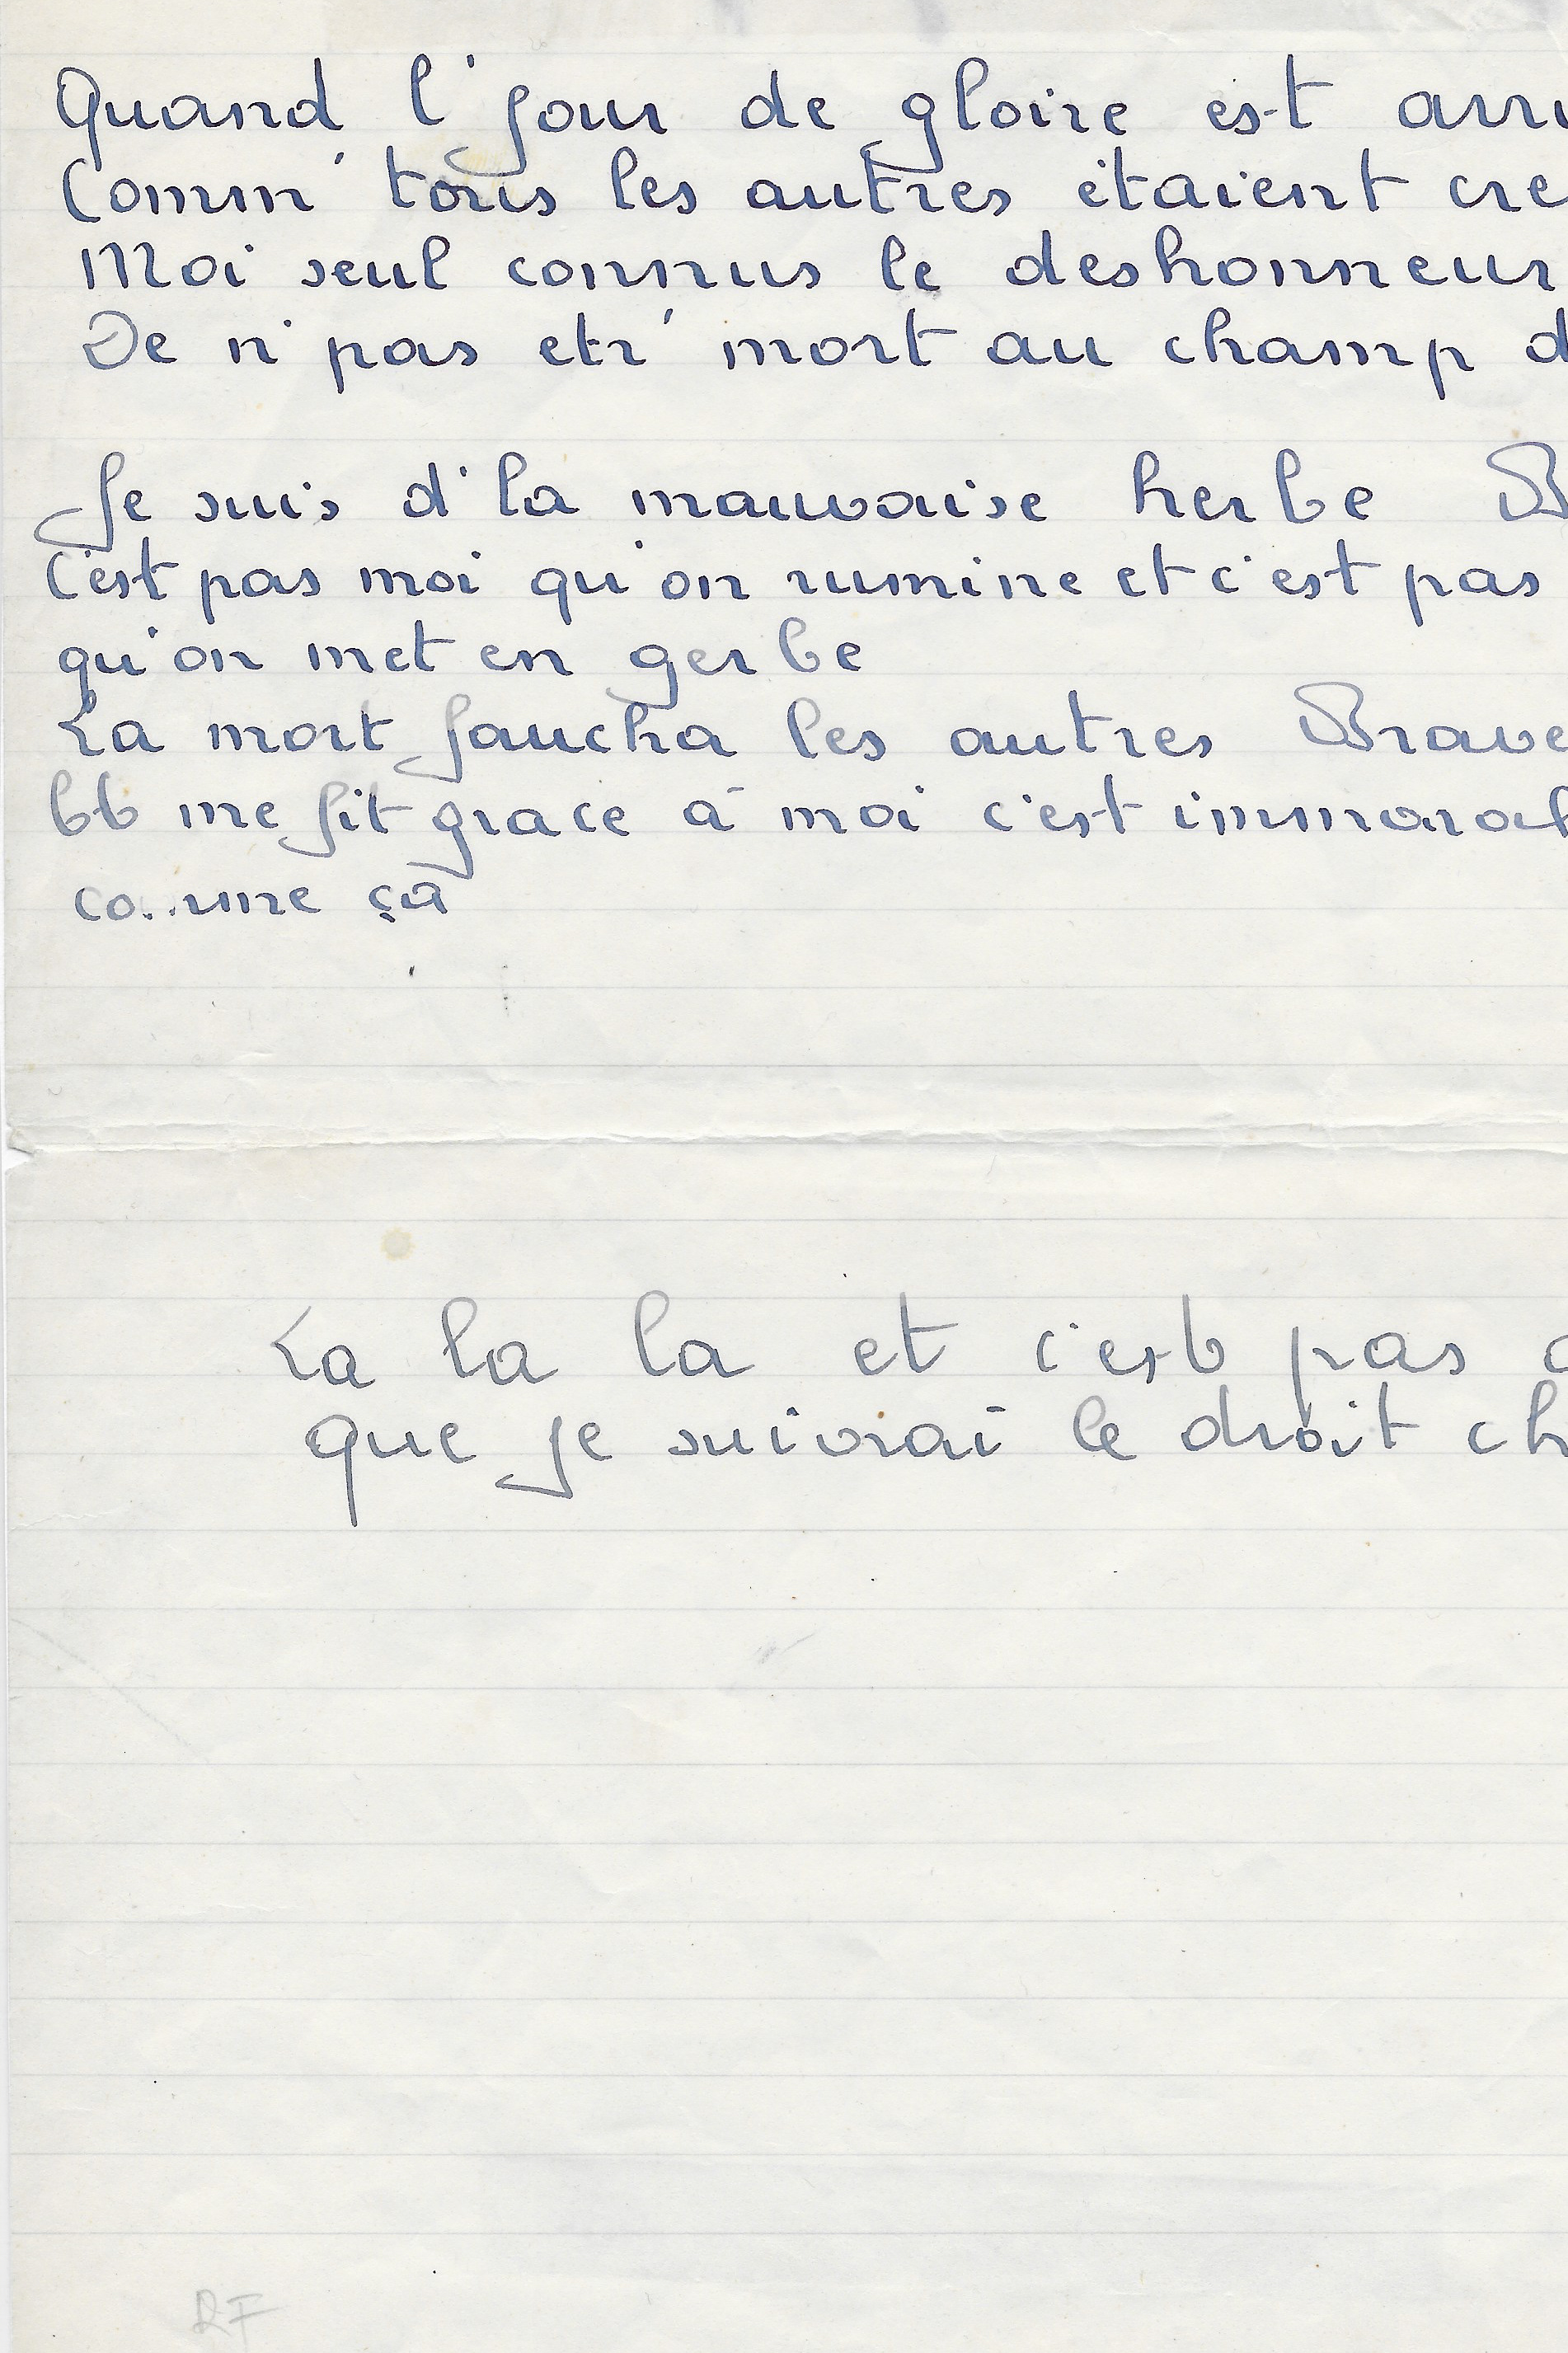 Quand l'jour de gloire est arri
Comm' tous les autres étaient cre
Moi seul connus le deshonneur
De n'pas etr' mort au champ d
Je suis d'la mauvaise herbe B
C'est pas moi qu'on rumine et c'est pas
qu'on met en gerbe
La mort faucha les autres Brave
me fit grace à moi c'est immoral
comme ça
La la la et c'est pas
que je suivrai le droit ch
RF